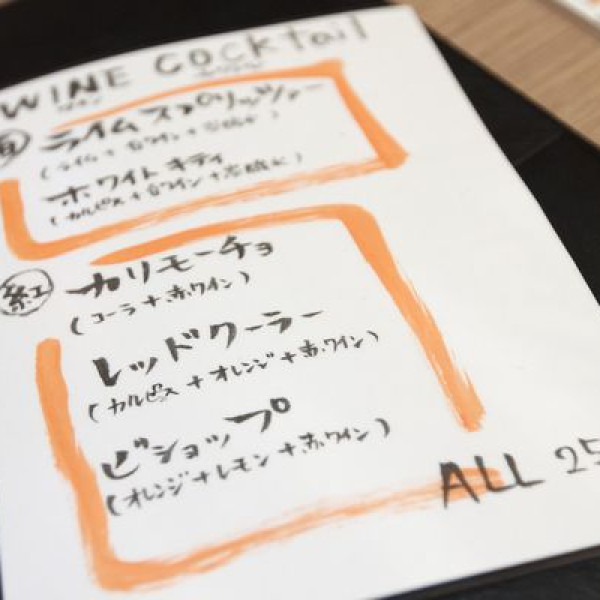 WINE COCKtail
ワイン カクテル
白 ライムスプリッツァー
(ライム+白ワイン+炭酸水)
ホワイトキティ
(カルピス+白ワイン+炭酸水)
紅 カリモーチョ
(コーラ+赤ワイン)
レッドクーラー
(カルピス+オレンジ+赤ワイン)
ビショップ
(オレンジ+レモン+赤ワイン)
ALL 25